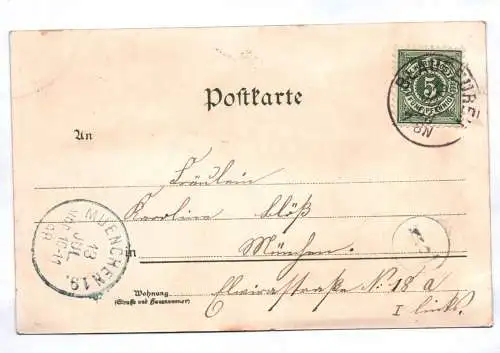 Postkarte
An
Fräulein
Karolina Clöß
in München.
Wohnung
(Straße und Hausnummer)
Elvirastraße N. 18 a
I links.
5
FÜNF PFENNIG
MUENCHEN 19.
13
JUL